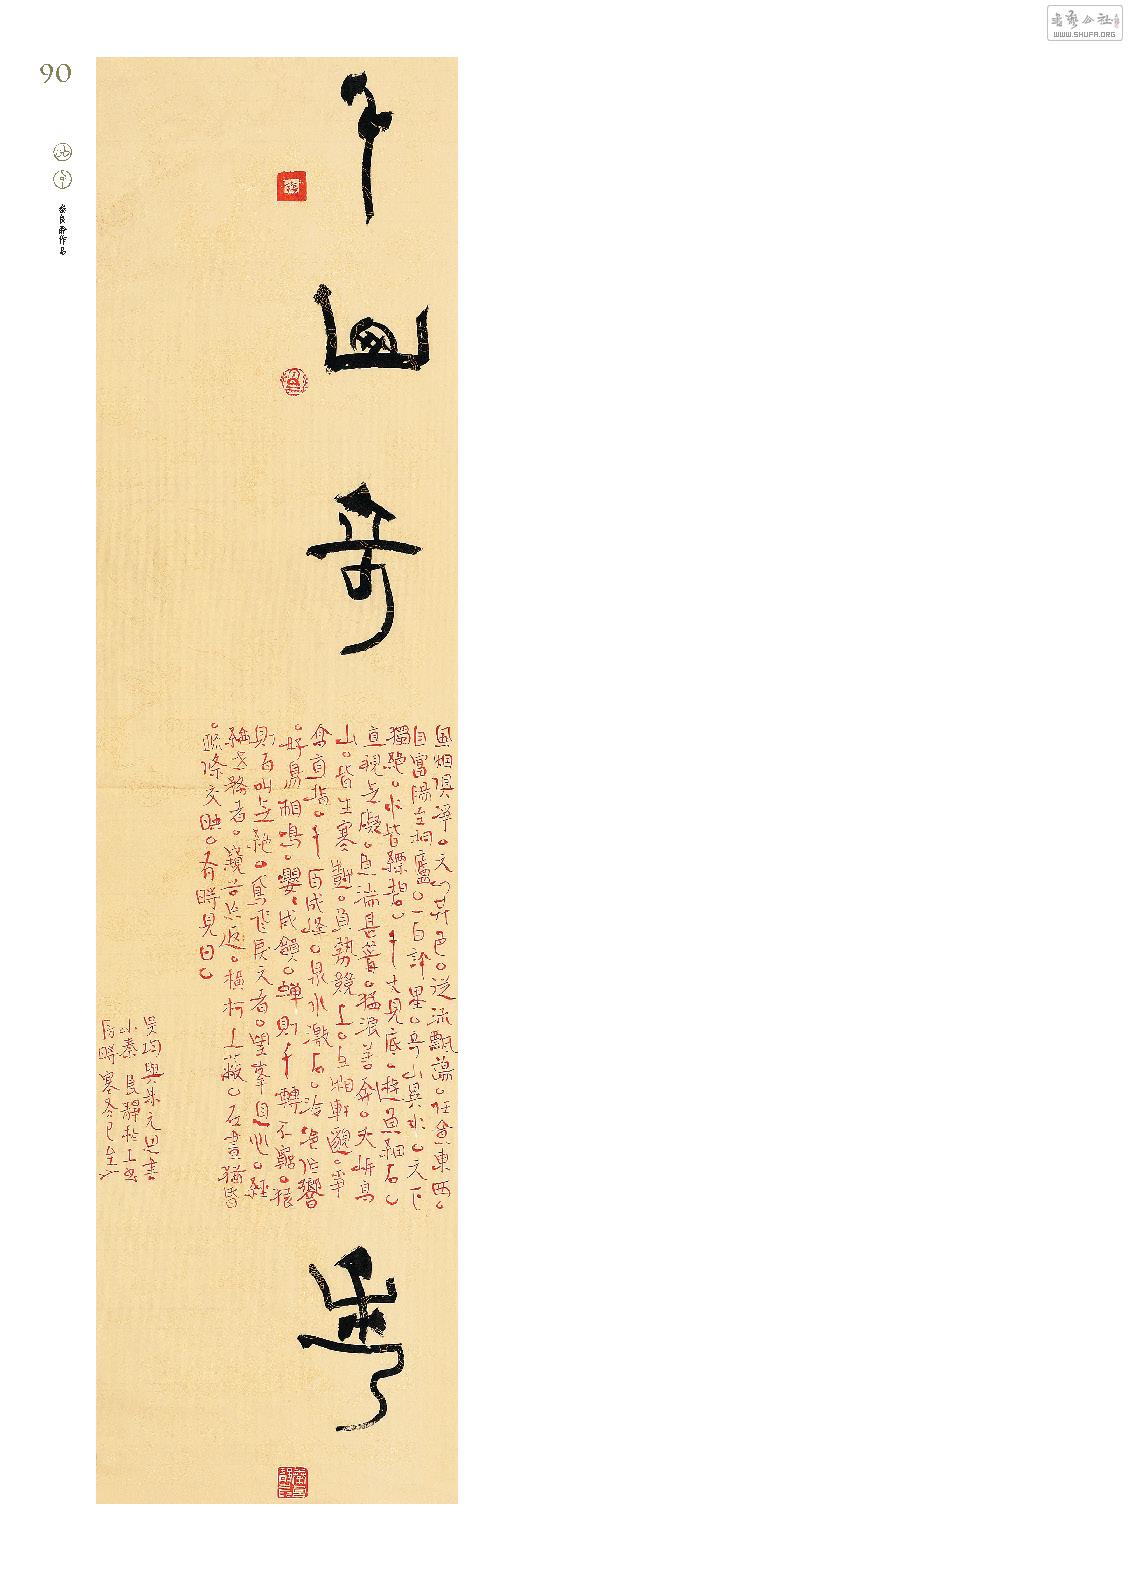 90
秦良靜作品
奇
風烟俱淨。天山共色。從流飄蕩。任意東西。
自富陽至桐廬。一百許里。奇山異水。天下
獨絕。水皆縹碧。千丈見底。游魚細石。
直視无礙。急湍甚箭。猛浪若奔。夾岸高
山。皆生寒樹。負勢競上。互相軒邈。爭
高直指。千百成峰。泉水激石。泠泠作響
。好鳥相鳴。嚶嚶成韻。蟬則千轉不窮。猿
則百叫无絕。鳶飛戾天者。望峯息心。經
綸世務者。窺谷忘返。橫柯上蔽。在晝猶昏
。疏條交映。有時見日。
吳均與朱元思書
小秦良靜於上
時寒冬已至
WWW.SHUFA.ORG